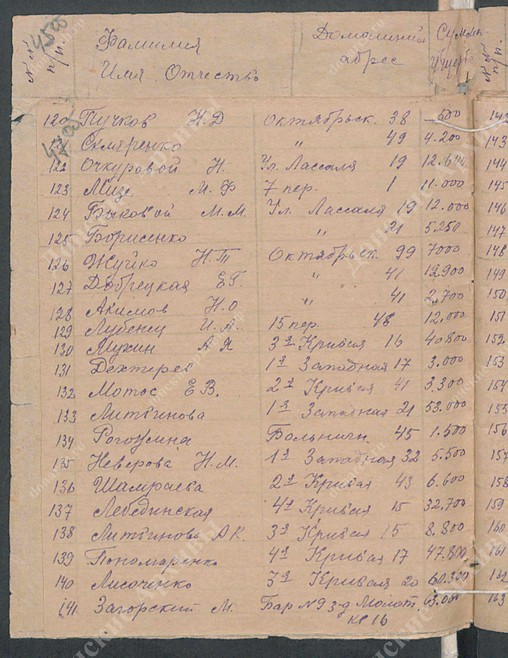 №№ п/п. Фамилия Имя Отчество Домашний адрес Сумма
120 Пучков Н.Д Октябрьск. 38 600 142
Скляренко " 49 4.200 143
122 Очкуровой Н. Ул. Лассаля 19 144
123 М. Ф 7 пер. 1 11.000 145
124 Быковой М.М. Ул. Лассаля 19 12.000 146
125 Борисенко " 21 5.250 147
126 Жуйко Н.Т Октябрьск. 99 7000 148
127 Добрецкая Е.Г. " 41 12,900 149
128 Акимов Н.О " 41 2,700 150
129 Лубенец И.А. 15 пер. 48 12,000 151
130 Мухин А Я 3я Кривая 16 40800 152
131 Дехтярев 1я Западная 17 3.000 153
132 Мотос Е В. 2я Кривая 41 5,300 154
133 Литвинова 1я Западная 21 53.000 155
134 Рогожина Больничн. 45 1.500 156
135 Неверова Н.М. 1я Западная 32 5.500 157
136 Шамраева 2я Кривая 43 6.600 158
137 Лебединская 4я Кривая 15 32,700 159
138 Литвинова А К. 3я Кривая 15 8.800 160
139 Пономаренко 4я Кривая 17 47.800 161
140 Лисаченко 3я Кривая 20 60.300 162
141 Загорский М. Бар №9 з-д Молот. 63.000 163
кв 16